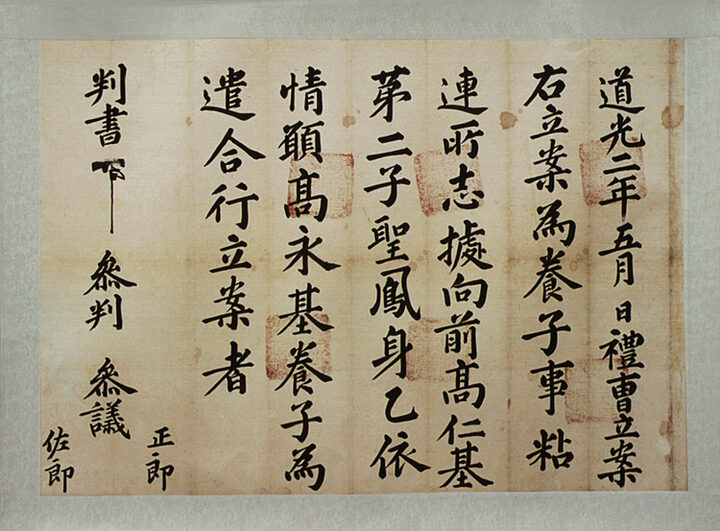 道光二年五月 日禮曺立案
右立案為養子事粘
連所志據向前髙仁基
苐二子聖鳳身乙依
情願髙永基養子為
遣合行立案者
判書 叅判 叅議
正郎
佐郎